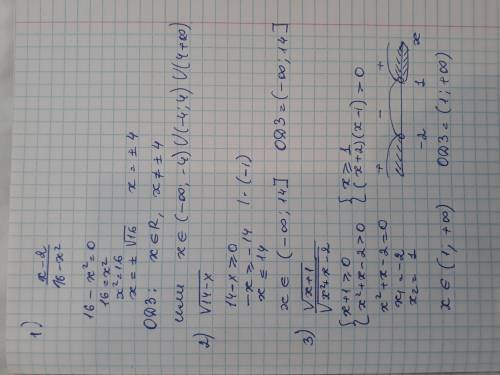 1) x-2 / 16-x²
16-x²=0
16=x²
x²=16
x=±√16 x=±4
ОДЗ: x∈R, x≠±4
или x∈(-∞; -4)∪(-4; 4)∪(4+∞)
2) √14-x
14-x≥0
-x≥-14 |·(-1)
x≤14
x∈(-∞; 14] ОДЗ=(-∞; 14]
3) √x+1 / √x²+x-2
{x+1≥0 {x≥1
{x²+x-2>0 {(x+2)(x-1)>0
x²+x-2=0
x₁=-2
x₂=1
+ - +
-2 1 x
x∈(1, +∞) ОДЗ=(1; +∞)